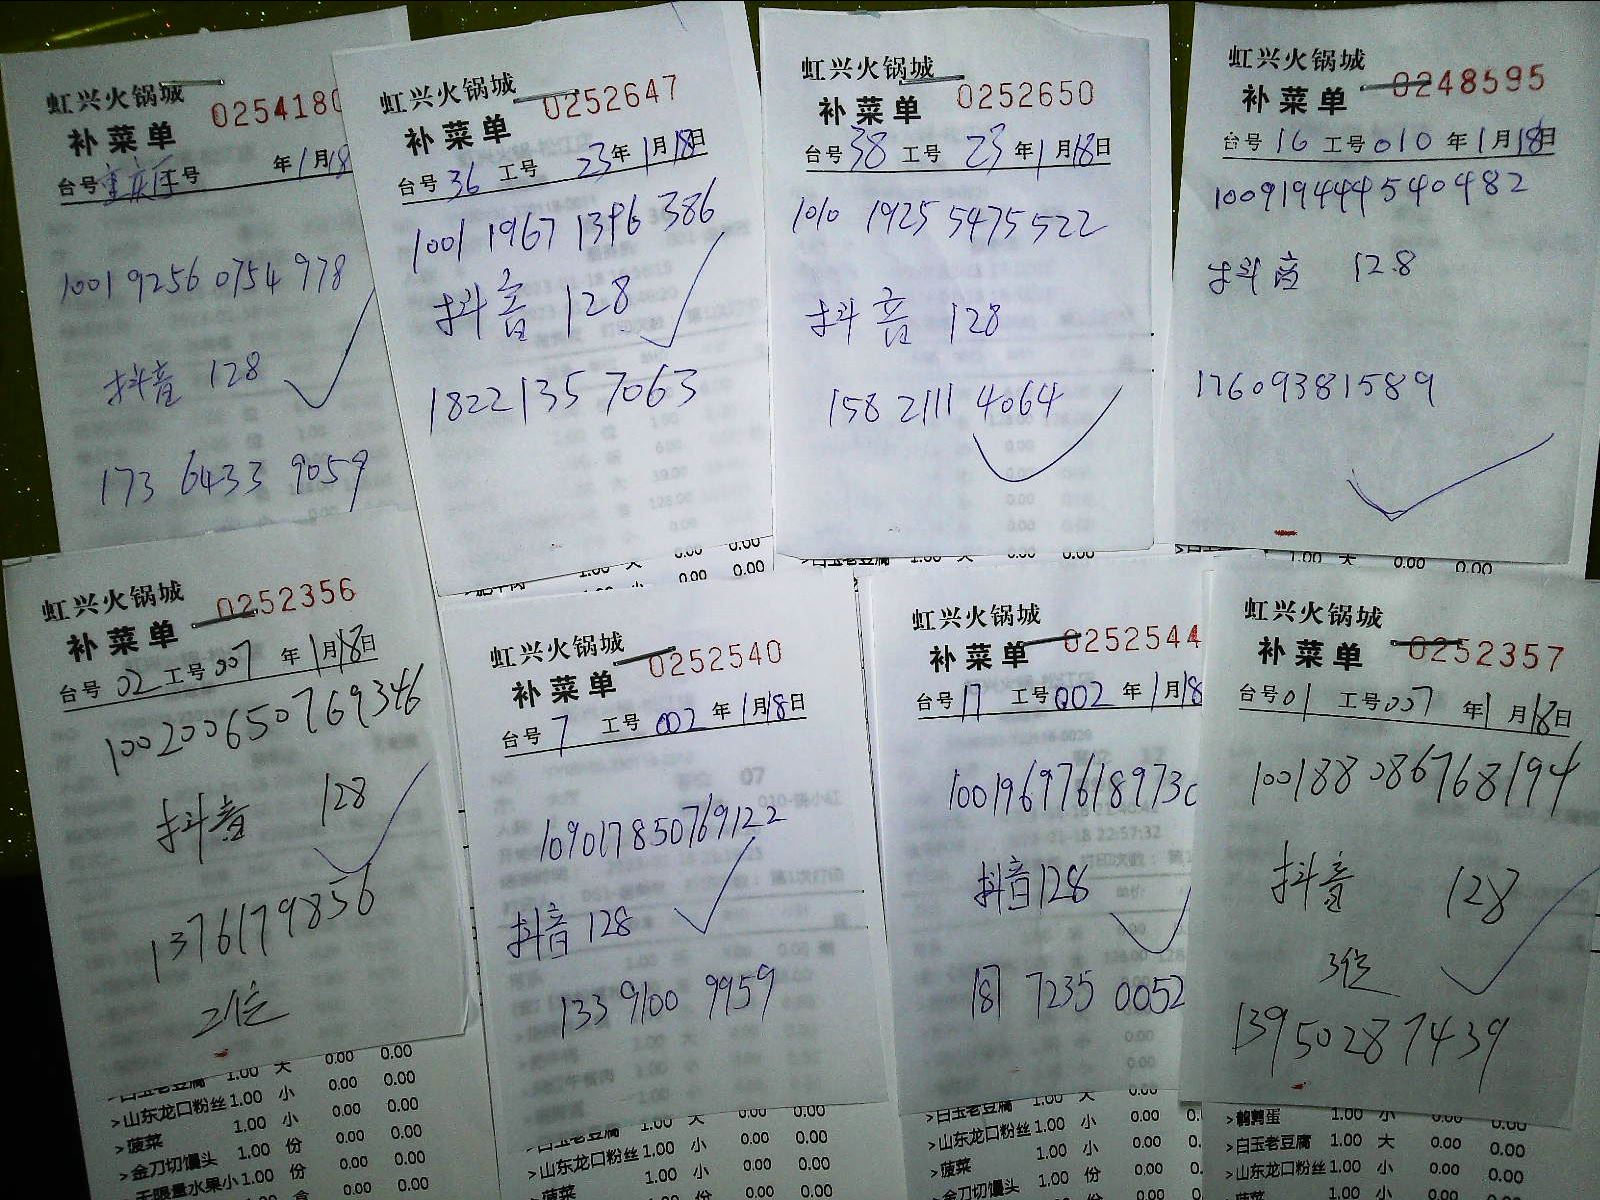 虹兴火锅城
补菜单 0254180
台号 重庆厅 号 年1月18
1001 9256 0754 978
抖音 128
173 6433 9059
虹兴火锅城
补菜单 0252647
台号 36 工号 23年1月18日
1001 1967 1396 386
抖音 128
1822135 7063
虹兴火锅城
补菜单 0252650
台号 38 工号 23年1月18日
1010 1925 5475522
抖音 128
158 2111 4064
虹兴火锅城
补菜单 0248595
台号 16 工号 010 年1月18日
100919444540482
抖音 128
17609381589
虹兴火锅城
补菜单 0252356
台号 02 工号 007 年1月18日
100200650769346
抖音 128
1376179856
2位
虹兴火锅城
补菜单 0252540
台号 7 工号 002 年1月18日
109017850769122
抖音 128
133 9100 9959
虹兴火锅城
补菜单 0252544
台号 17 工号 002 年1月18
10019697618973
抖音 128
187 7235 0052
虹兴火锅城
补菜单 0252357
台号 01 工号 007 年1月18日
100188086768194
抖音 128
3位
13950287439
>白玉老豆腐 1.00 大 0.00 0.00
>山东龙口粉丝 1.00 小 0.00 0.00
>菠菜 1.00 小 0.00 0.00
>金刀切馒头 1.00 份 0.00 0.00
无限量水果小 1.00 份 0.00 0.00
>白玉老豆腐 1.00 大 0.00 0.00
>山东龙口粉丝 1.00 小 0.00 0.00
>菠菜 1.00 小 0.00 0.00
>白玉老豆腐 1.00 大 0.00
>山东龙口粉丝 1.00 小 0.00
>菠菜 1.00 小 0.00
>金刀切馒头 1.00 份 0.00
>鹌鹑蛋 1.00 小 0.00 0.00
>白玉老豆腐 1.00 大 0.00 0.00
>山东龙口粉丝 1.00 小 0.00 0.00
>菠菜 1.00 小 0.00 0.00